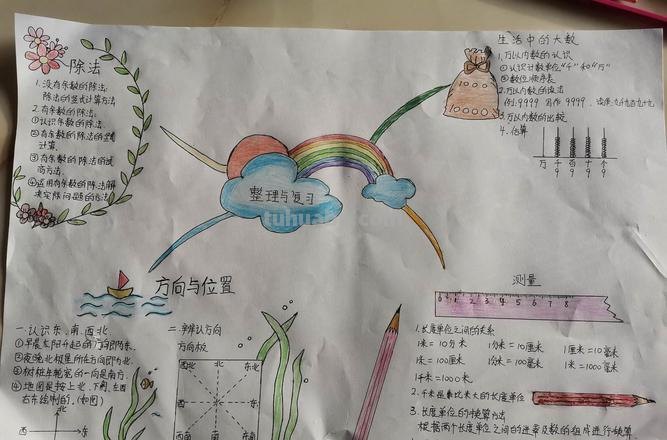 除法
1. 没有余数的除法.
除法的竖式计算方法
2. 有余数的除法.
①认识余数的除法.
②有余数的除法的竖式
计算.
③有余数的除法的试
商方法.
④运用有余数的除法解
决实际问题的方法
整理与复习
tuhua
生活中的大数
1. 万以内数的认识
①认识计数单位"千"和"万"
②数位顺序表
2. 万以内数的读法
例:9999 写作 9999. 读作:九千九百九十九
3. 万以内数的比较
4. 估算
万 千 百 十 个
9 9 9 9
10
1000
方向与位置
一. 认识东、南、西、北.
①早晨太阳升起的方向即为东.
②北极星所在方向即为北.
③树桩年轮宽的一向是南方.
④地图是按上北、下南、左西
右东绘制的. (如图)
北
西 东
二. 辨认方向
方向板
西北 北 东北
西 东
西南 南
测量
0 1 2 3 4 5 6 7 8
1. 长度单位之间的关系
1米=10分米 1分米=10厘米 1厘米=10毫米
1米=100厘米 1分米=100毫米 1米=1000毫米
1千米=1000米
2. 千米是非比米大的长度单位
3. 长度单位的换算方法
根据两个长度单位之间的进率及数的组成进行换算.